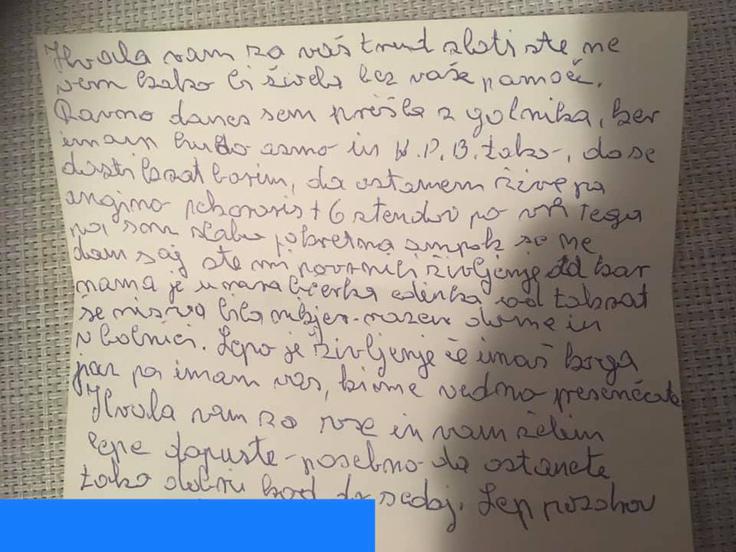 Hvala vam za vaš trud zlati ste ne
vem kako bi živela brez vaše pomoči.
Ravno danes sem prišla z golnika, ker
imam hudo asmo in K.P.B. tako, da se
dosti krat borim, da ostanem živa pa
angino pektoris + 6 stendov po vrh tega
pa sem slabo pokretna ampak se ne
dam saj ste mi povrnili življenje od kar
mama je umrla hčerka edinka od takrat
še nisva bila nikjer-razen doma in
v bolnici. Lepo je življenje če imaš koga
jaz pa imam vas, ki me vedno presenečate
Hvala vam za vse in vam želim
lepe dopuste-posebno da ostanete
tako dobri kod do sedaj. Lep pozdrav